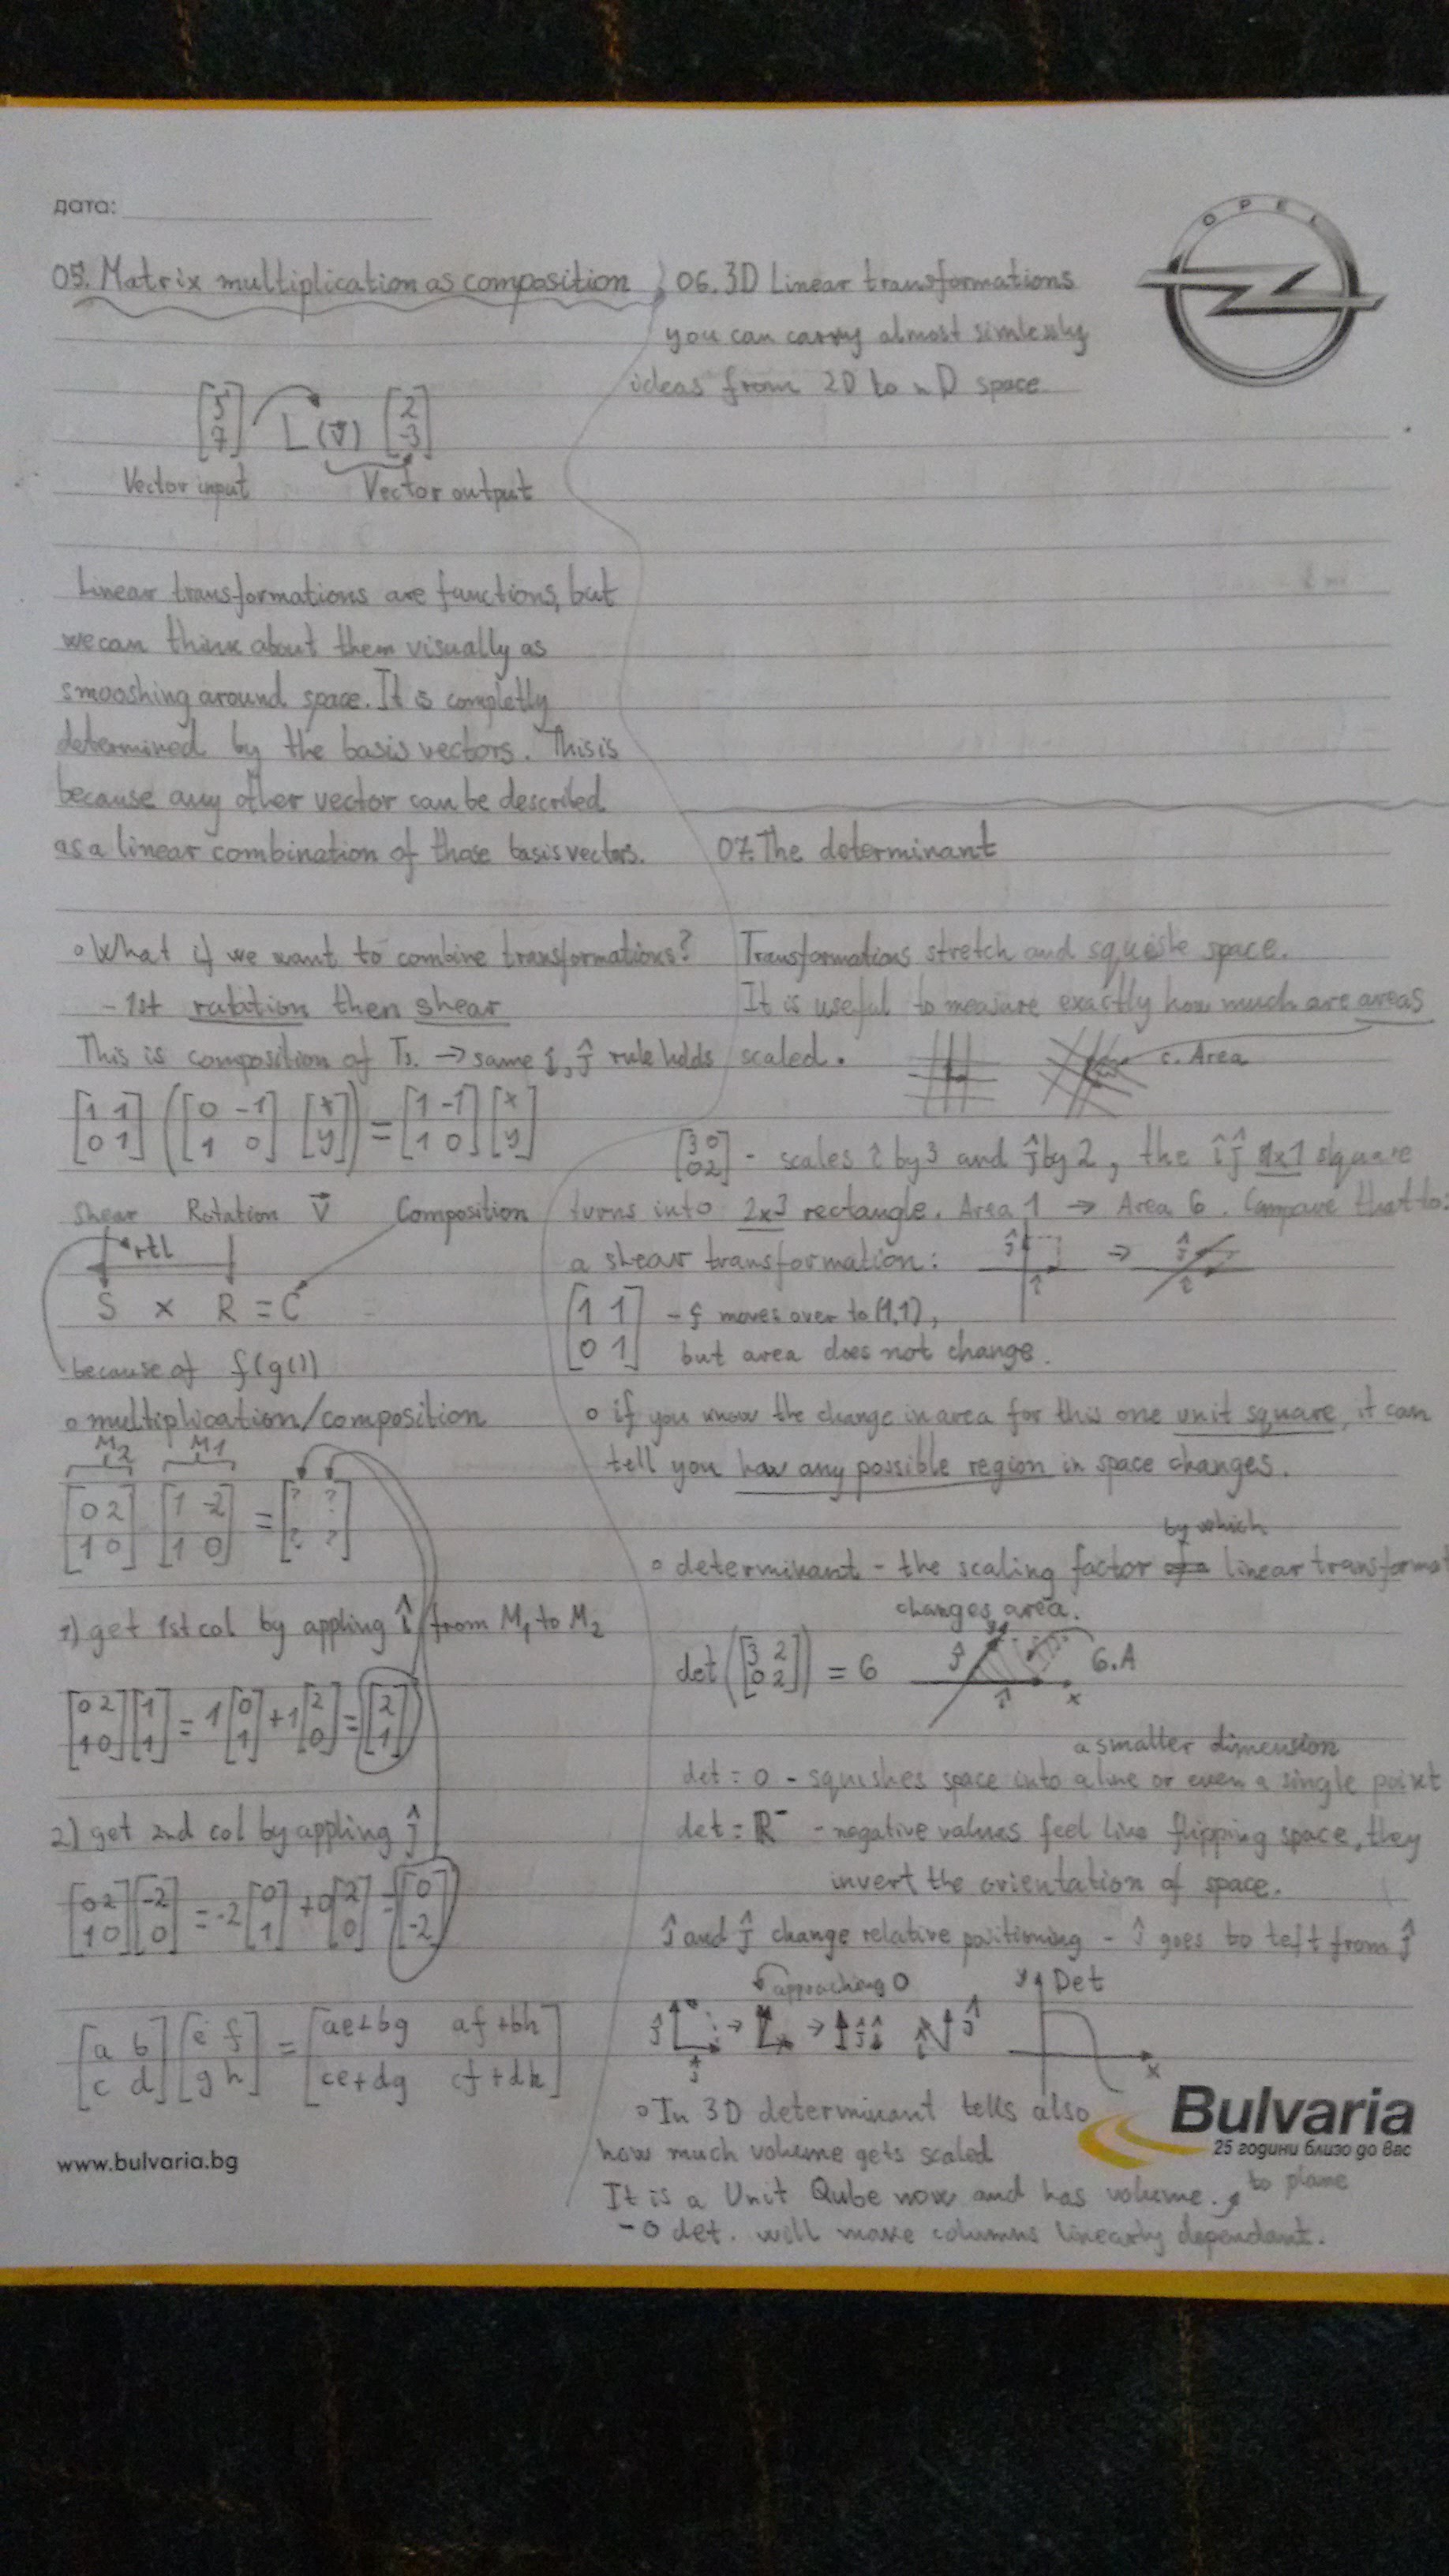 дата:
OPEL
05. Matrix multiplication as composition
[5 7] L(v⃗) [2 -3]
Vector input Vector output
Linear transformations are functions, but
we can think about them visually as
smooshing around space. It is completly
determined by the basis vectors. This is
because any other vector can be described
as a linear combination of those basis vectors.
o What if we want to combine transformations?
- 1st rotation then shear
This is composition of Ts. → same î, ĵ rule holds
[1 1; 0 1] ([0 -1; 1 0] [x; y]) = [1 -1; 1 0] [x; y]
Shear Rotation v⃗ Composition
rtl
S x R = C
because of f(g())
o multiplication/composition
M2 M1
[0 2; 1 0] [1 -2; 1 0] = [? ?; ? ?]
1) get 1st col by appling î from M1 to M2
[0 2; 1 0] [1; 1] = 1 [0; 1] + 1 [2; 0] = [2; 1]
2) get 2nd col by appling ĵ
[0 2; 1 0] [-2; 0] = -2 [0; 1] + 0 [2; 0] = [0; -2]
[a b; c d] [e f; g h] = [ae+bg af+bh; ce+dg cf+dh]
www.bulvaria.bg
06. 3D Linear transformations
you can carry almost simlessly
ideas from 2D to nD space
07. The determinant
Transformations stretch and squishe space.
It is useful to measure exactly how much are areas
scaled.
c. Area
[3 0; 0 2] - scales î by 3 and ĵ by 2, the î ĵ 1x1 square
turns into 2x3 rectangle. Area 1 → Area 6. Compare that to:
a shear transformation: ĵ î ⇒ ĵ î
[1 1; 0 1] - ĵ moves over to (1,1),
but area does not change.
o if you know the change in area for this one unit square, it can
tell you how any possible region in space changes.
by which
o determinant - the scaling factor linear transformat
changes area.
det([3 2; 0 2]) = 6 ĵ î x 6.A
a smaller dimension
det = 0 - squishes space into a line or even a single point
det = R⁻ - negative values feel like flipping space, they
invert the orientation of space.
î and ĵ change relative positioning - î goes to left from ĵ
approaching 0 y Det
x
o In 3D determinant tells also
how much volume gets scaled
It is a Unit Qube now and has volume. to plane
- 0 det. will make columns linearly dependant.
Bulvaria
25 години близо до вас